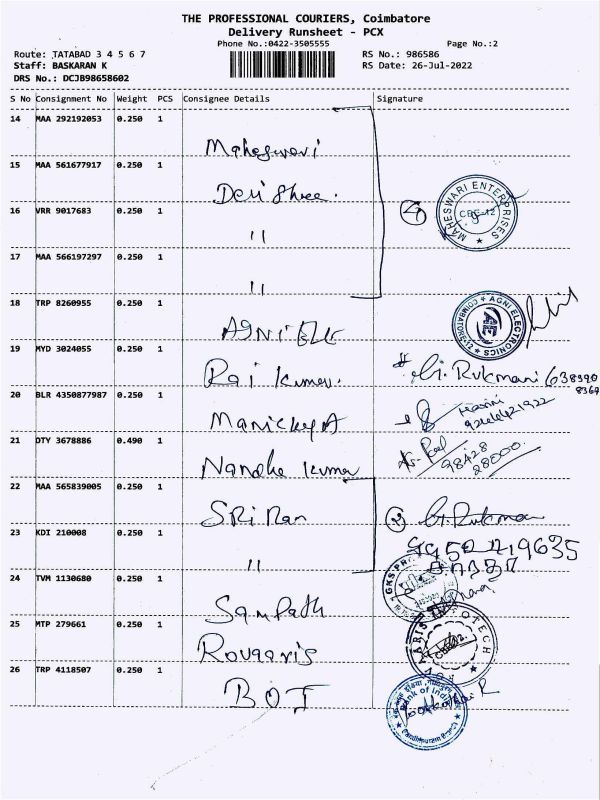 THE PROFESSIONAL COURIERS, Coimbatore
Delivery Runsheet - PCX
Phone No.:0422-3505555 Page No.:2
Route: TATABAD 3 4 5 6 7 RS No.: 986586
Staff: BASKARAN K RS Date: 26-Jul-2022
DRS No.: DCJB98658602
S No Consignment No Weight PCS Consignee Details Signature
14 MAA 292192053 0.250 1
Maheswari
15 MAA 561677917 0.250 1
Devi Shree.
16 VRR 9017683 0.250 1
"
④ MAHESWARI ENTERPRISES CBE-12
17 MAA 566197297 0.250 1
"
18 TRP 8260955 0.250 1
AGNI ELE
AGNI ELECTRONICS COIMBATORE-12
19 MYD 3024055 0.250 1
Raj Kumar. G. Rukmani
20 BLR 4350877987 0.250 1
Manickya
21 DTY 3678886 0.490 1
Nandha Kumar 98428 28000
22 MAA 565839005 0.250 1
SRi Ram ② G. Rukmani
23 KDI 210008 0.250 1
"
24 TVM 1130680 0.250 1
Sampath
25 MTP 279661 0.250 1
26 TRP 4118507 0.250 1
BOI
Bank of India
Gandhipuram Branch